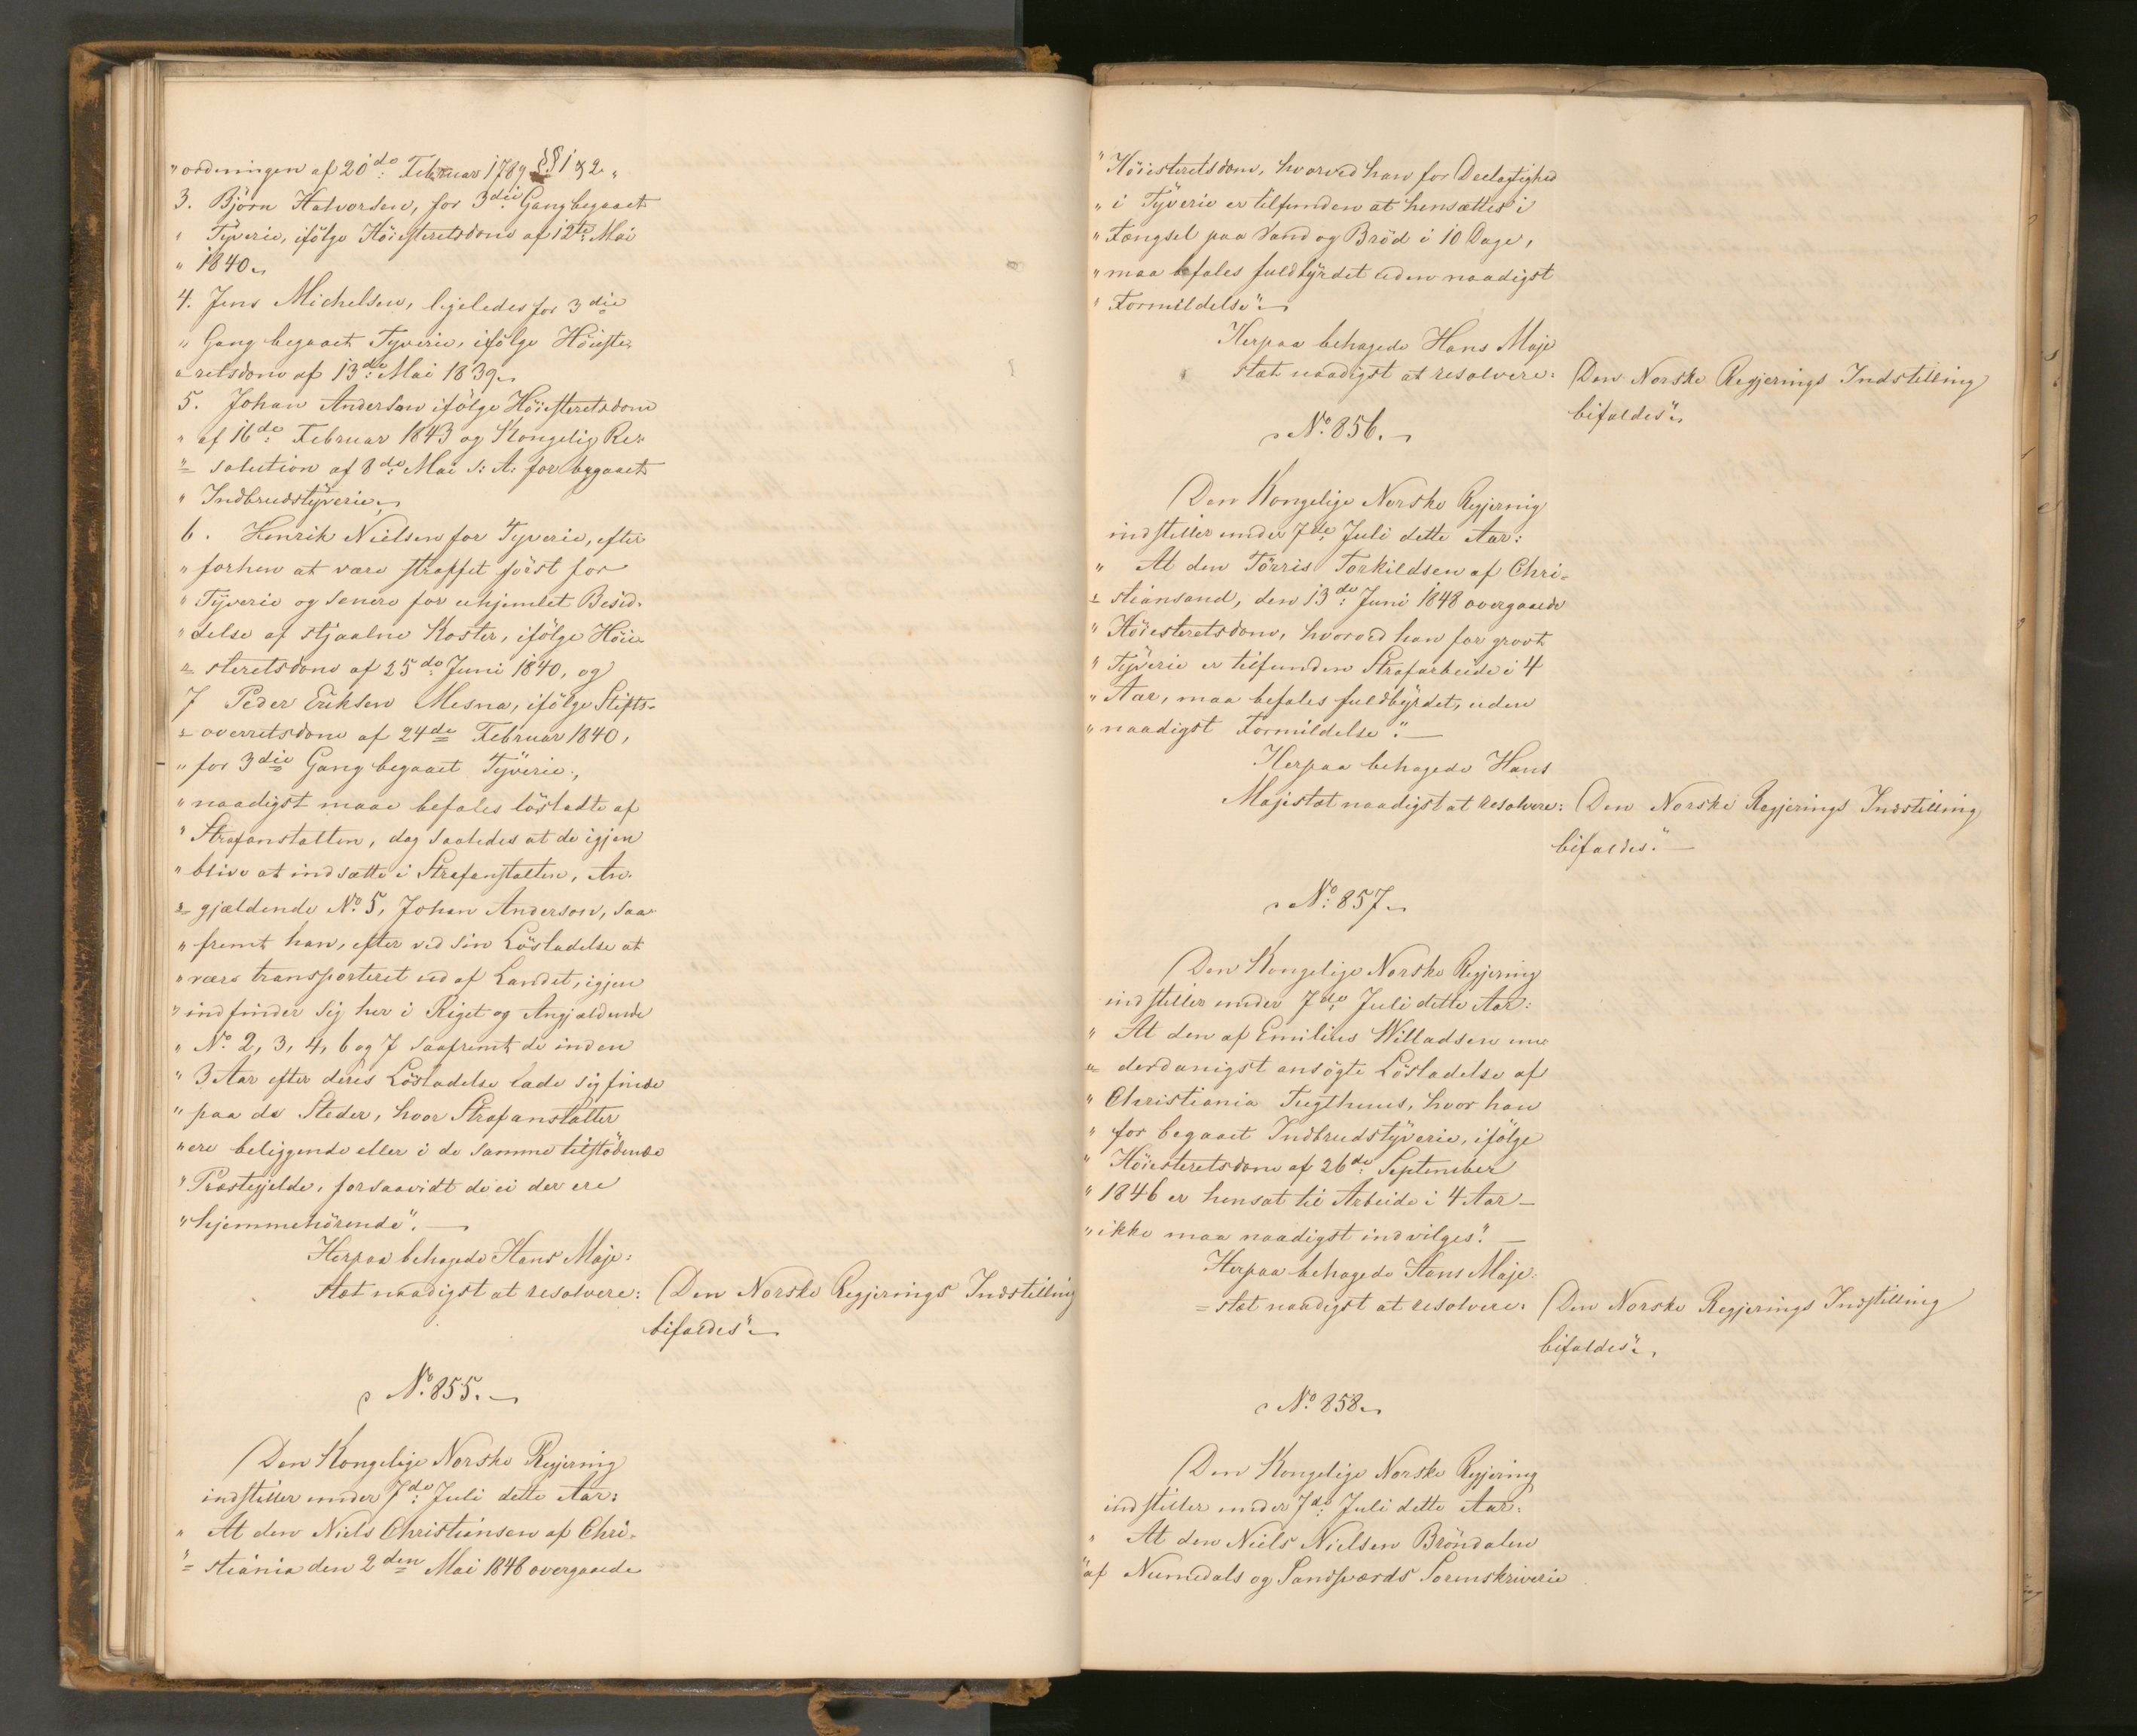 "ordningen af 20de Februar 1789 §§ 1 & 2 "
3. Björn Halvorsen, for 3die Gang begaaet
" Tyverie, ifölge Höiesteretsdom af 12te Mai
" 1840.
4. Jens Michelsen, ligeledes for 3die
" Gang begaaet Tyverie, ifölge Höieste-
"retsdom af 13de Mai 1839.
5. Johan Anderson ifölge Höiesteretsdom
" af 16de Februar 1843 og Kongelig Re-
"= solution af 8de Mai s: A: for begaaet
" Indbrudstyverie,
6. Henrik Nielsen for Tyverie, efter
" forhen at være straffet först for
" Tyverie og senere for uhjemlet Besid-
" delse af stjaalne Koster, ifölge Höie-
"= steretsdom af 25de Juni 1840, og
7 Peder Eriksen Mesna, ifölge Stifts-
"= overretsdom af 24de Februar 1840,
" for 3die Gang begaaet Tyverie,
" naadigst maae befales lösladte af
" Strafanstalten, dog saaledes at de igjen
" blive at indsætte i Strafanstalten, An-
"= gjældende No 5, Johan Anderson, saa-
" fremt han, efter ved sin Lösladelse at
" være transporteret ud af Landet, igjen
" indfinder sig her i Riget og Angjældende
" No 2, 3, 4, 6 og 7 saafremt de inden
" 3 Aar efter deres Lösladelse lade sig finde
" paa de Steder, hvor Strafanstalter
" ere beliggende eller i de samme tilstödende
" Præstegjelde, forsaavidt de ei der ere
" hjemmehörende".
Herpaa behagede Hans Maje-
stæt naadigst at resolvere: Den Norske Regjerings Indstilling
bifaldes".
No. 855.
Den Kongelige Norske Regjering
indstiller under 7de Juli dette Aar:
" At den Niels Christiansen af Chri-
"= stiania den 2den Mai 1848 overgaaede
" Höiesteretsdom, hvorved han for Deelagtighed
" i Tyverie er tilfunden at hensættes i
" Fængsel paa Vand og Bröd i 10 Dage,
" maa befales fuldbyrdet uden naadigst
" Formildelse".
Herpaa behagede Hans Maje
stæt naadigst at resolvere: Den Norske Regjerings Indstilling
bifaldes".
No. 856.
Den Kongelige Norske Regjering
indstiller under 7de Juli dette Aar:
" At den Törris Torkildsen af Chri-
"= stiansand, den 13de Juni 1848 overgaaede
" Höiesteretsdom, hvorved han for grovt
" Tyverie er tilfunden Strafarbeide i 4
" Aar, maa befales fuldbyrdet, uden
" naadigst Formildelse".
Herpaa behagede Hans
Majestæt naadigst at resolvere: Den Norske Regjerings Indstilling
bifaldes".
No. 857.
Den Kongelige Norske Regjering
indstiller under 7de Juli dette Aar:
" At den af Emilius Willadsen un-
"= derdanigst ansögte Lösladelse af
" Christiania Tugthuus, hvor han
" for begaaet Indbrudstyverie, ifölge
" Höiesteretsdom af 26de September
" 1846 er hensat til Arbeide i 4 Aar
" ikke maa naadigst indvilges".
Herpaa behagede Hans Maje-
= stæt naadigst at resolvere: Den Norske Regjerings Indstilling
bifaldes".
No. 858.
Den Kongelige Norske Regjering
indstiller under 7de Juli dette Aar:
" At den Niels Nielsen Bröndalen
"af Numedals og Sandsværds Sorenskriverie